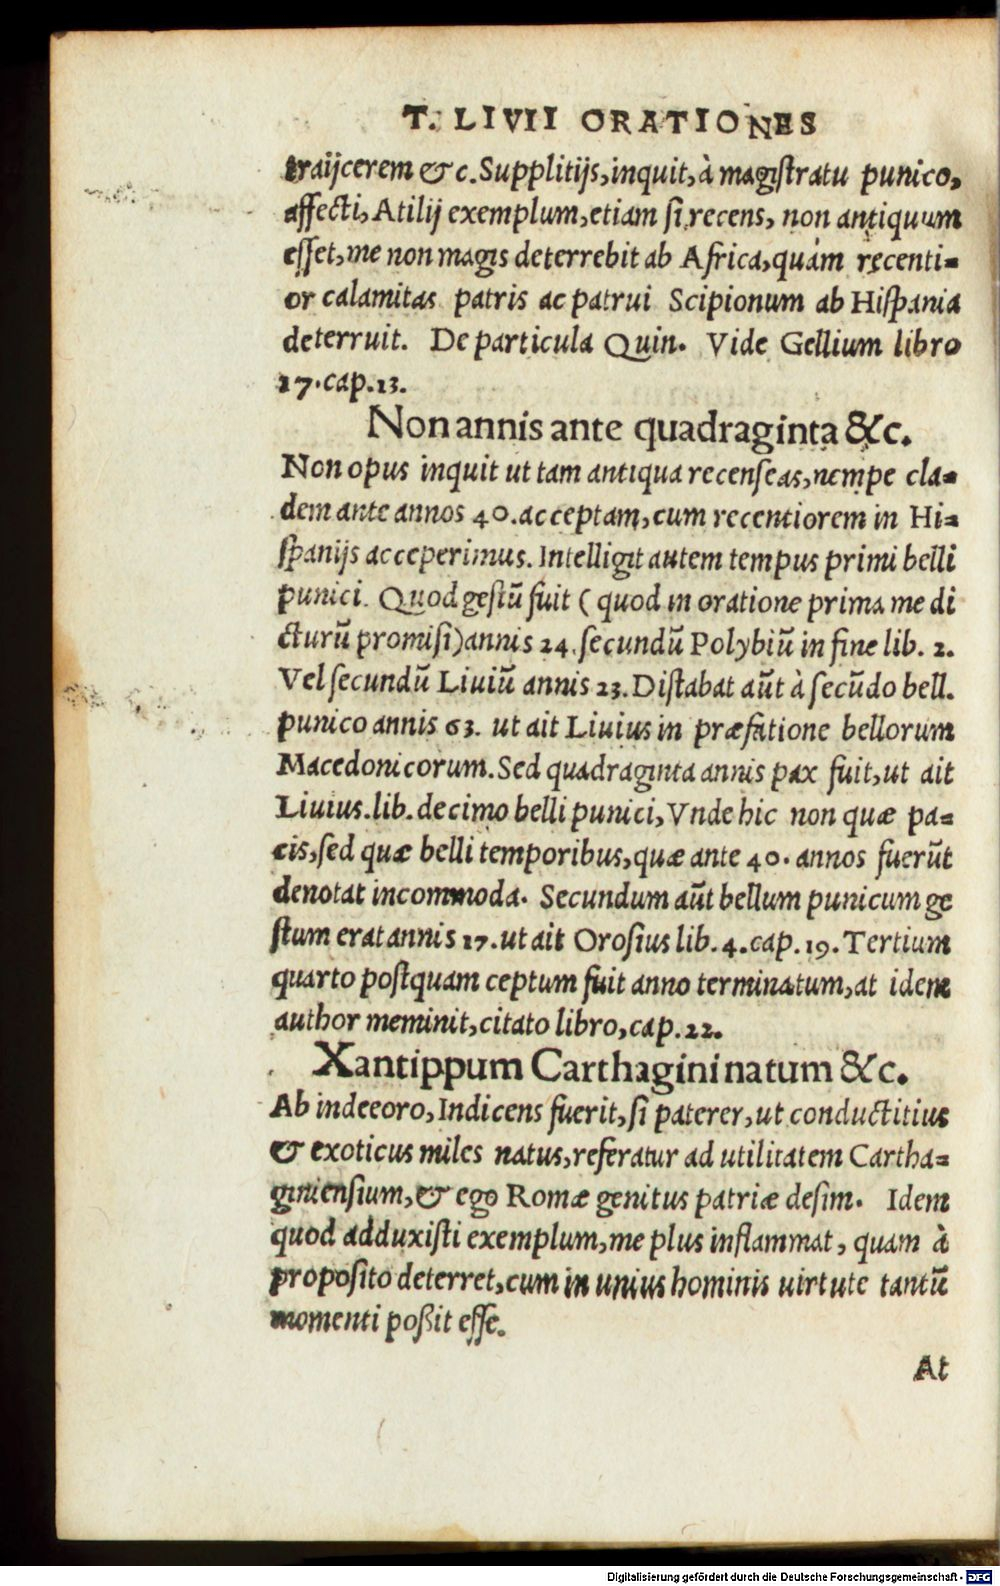 T. LIVII ORATIONES
traijcerem & c. Supplitijs, inquit, à magistratu punico,
affecti, Atilij exemplum, etiam si recens, non antiquum
esset, me non magis deterrebit ab Africa, quàm recenti=
or calamitas patris ac patrui Scipionum ab Hispania
deterruit. De particula Quin. Vide Gellium libro
17. cap. 13.
Non annis ante quadraginta &c.
Non opus inquit ut tam antiqua recenseas, nempe cla=
dem ante annos 40. acceptam, cum recentiorem in Hi=
spanijs acceperimus. Intelligit autem tempus primi belli
punici. Quod gestũ fuit ( quod in oratione prima me di
cturũ promisi) annis 24. secundũ Polybiũ in fine lib. 2.
Vel secundũ Liuiũ annis 23. Distabat aũt à secũdo bell.
punico annis 63. ut ait Liuius in præfatione bellorum
Macedonicorum. Sed quadraginta annis pax fuit, ut ait
Liuius. lib. decimo belli punici, Vnde hic non quæ pa=
cis, sed quæ belli temporibus, quæ ante 40. annos fuerũt
denotat incommoda. Secundum aũt bellum punicum ge
stum erat annis 17. ut ait Orosius lib. 4. cap. 19. Tertium
quarto postquam ceptum fuit anno terminatum, at idem
author meminit, citato libro, cap. 22.
Xantippum Carthagini natum &c.
Ab indecoro, Indicens fuerit, si paterer, ut conductitius
& exoticus miles natus, referatur ad utilitatem Cartha=
giniensium, & ego Romæ genitus patriæ desim. Idem
quod adduxisti exemplum, me plus inflammat, quam à
proposito deterret, cum in unius hominis uirtute tantũ
momenti poßit esse.
At
Digitalisierung gefördert durch die Deutsche Forschungsgemeinschaft - DFG